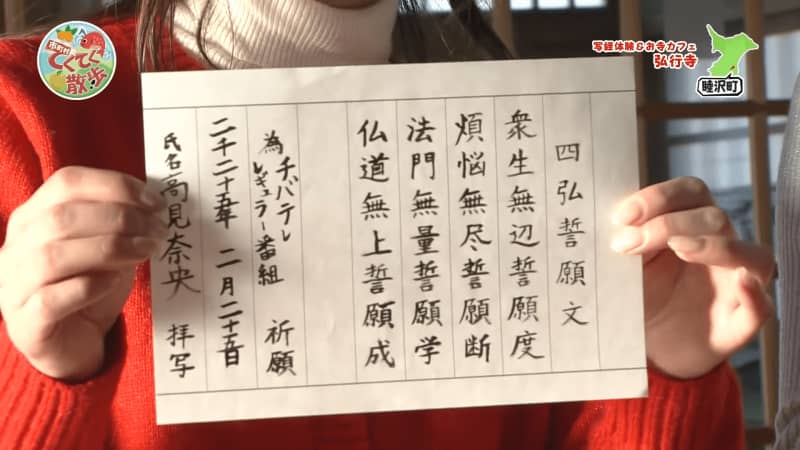 市町村
てくてく
散歩
写経体験&お寺カフェ
弘行寺
睦沢町
四弘誓願文
衆生無辺誓願度
煩悩無尽誓願断
法門無量誓願学
仏道無上誓願成
為 チバテレ
レギュラー番組 祈願
二千二十五年 二月二十五日
氏名 高見奈央 拝写